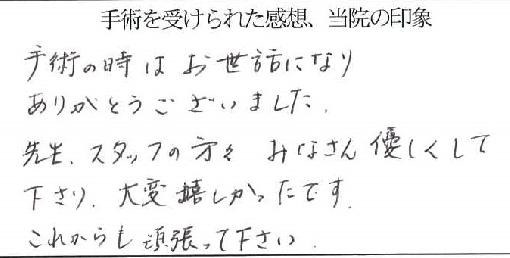 手術を受けられた感想、当院の印象
手術の時は お世話になり
ありがとうございました.
先生、スタッフの方々 みなさん 優しくして
下さり、大変嬉しかったです.
これからも 頑張って下さい.